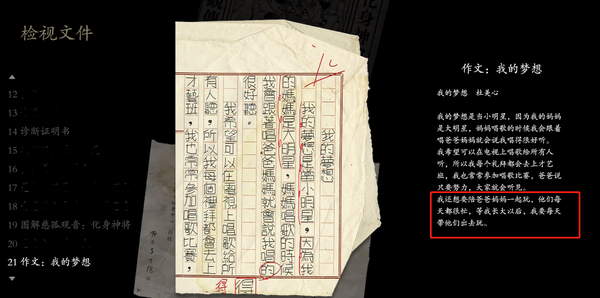 检视文件
12
13
14 诊断证明书
15
16
17
18
19 图解慈孤观音：化身神将
20
21 作文：我的梦想
我的夢想
我的夢想是當小明星，因為我
的媽媽是大明星，媽媽唱歌的時候
我會跟著唱爸爸媽媽就會說我唱的
很好聽。
我希望可以在電視上唱歌給所
有人聽，所以我每個禮拜都會去上
才藝班，我也常常參加唱歌比賽，
得
得
作文：我的梦想
我的梦想 杜美心
我的梦想是当小明星，因为我的妈妈
是大明星，妈妈唱歌的时候我会跟着
唱爸爸妈妈就会说我唱得很好听。
我希望可以去电视上唱歌给所有人
听，所以我每个礼拜都会去上才艺
班，我也常常参加唱歌比赛，爸爸说
只要努力，大家就会听见。
我还想要陪爸爸妈妈一起玩，他们每
天都很忙，等我长大以后，我要每天
带他们出去玩。